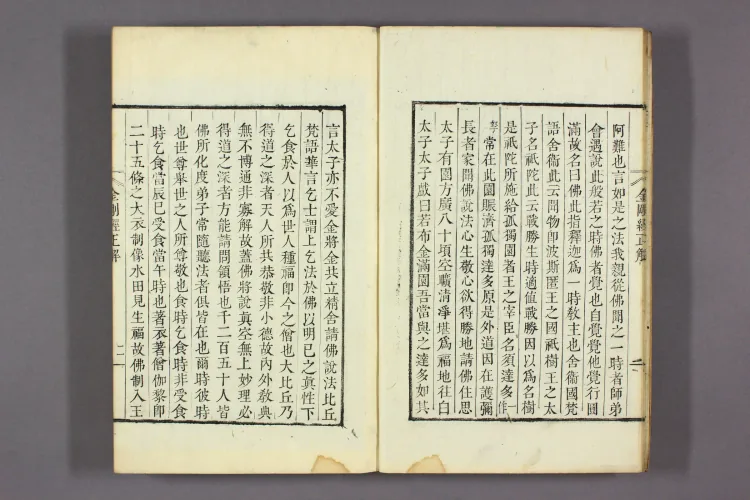 阿難也言如是之法我親從佛聞之一時者師弟
會遇說此般若之時佛者覺也自覺覺他覺行圓
滿故名曰佛此指釋迦為一時敎主也舍衞國梵
語舍衞此云聞物卽波斯匿王之國祇樹王之太
子名祇陀此云戰勝生時適值戰勝因以爲名樹
是祇陀所施給孤獨園者王之宰臣名須達多一作
拏常在此園賑濟孤獨達多原是外道因在護彌
長者家聞佛說法心生敬心欲得勝地請佛住思
太子有園方廣八十頃空曠清淨堪爲福地往白
太子太子戲曰若布金滿園吾當與之達多如其
金剛經正解
二
言太子亦不愛金將金共立精舍請佛說法比丘
梵語華言乞士謂上乞法於佛以明已之真性下
乞食於人以爲世人種福卽今之僧也大比丘乃
得道之深者天人所共恭敬非小德故內外敎典
無不博通非寡解故蓋佛將說真空無上妙理必
得道之深者方能請問領悟也千二百五十人皆
佛所化度弟子常隨聽法者俱皆在也爾時彼時
也世尊舉世之人所尊敬也食時乞食時非受食
時乞食當辰巳受食當午時也著衣著僧伽黎卽
二十五條之大衣制像水田見生福故佛制入王
金剛經正解
二